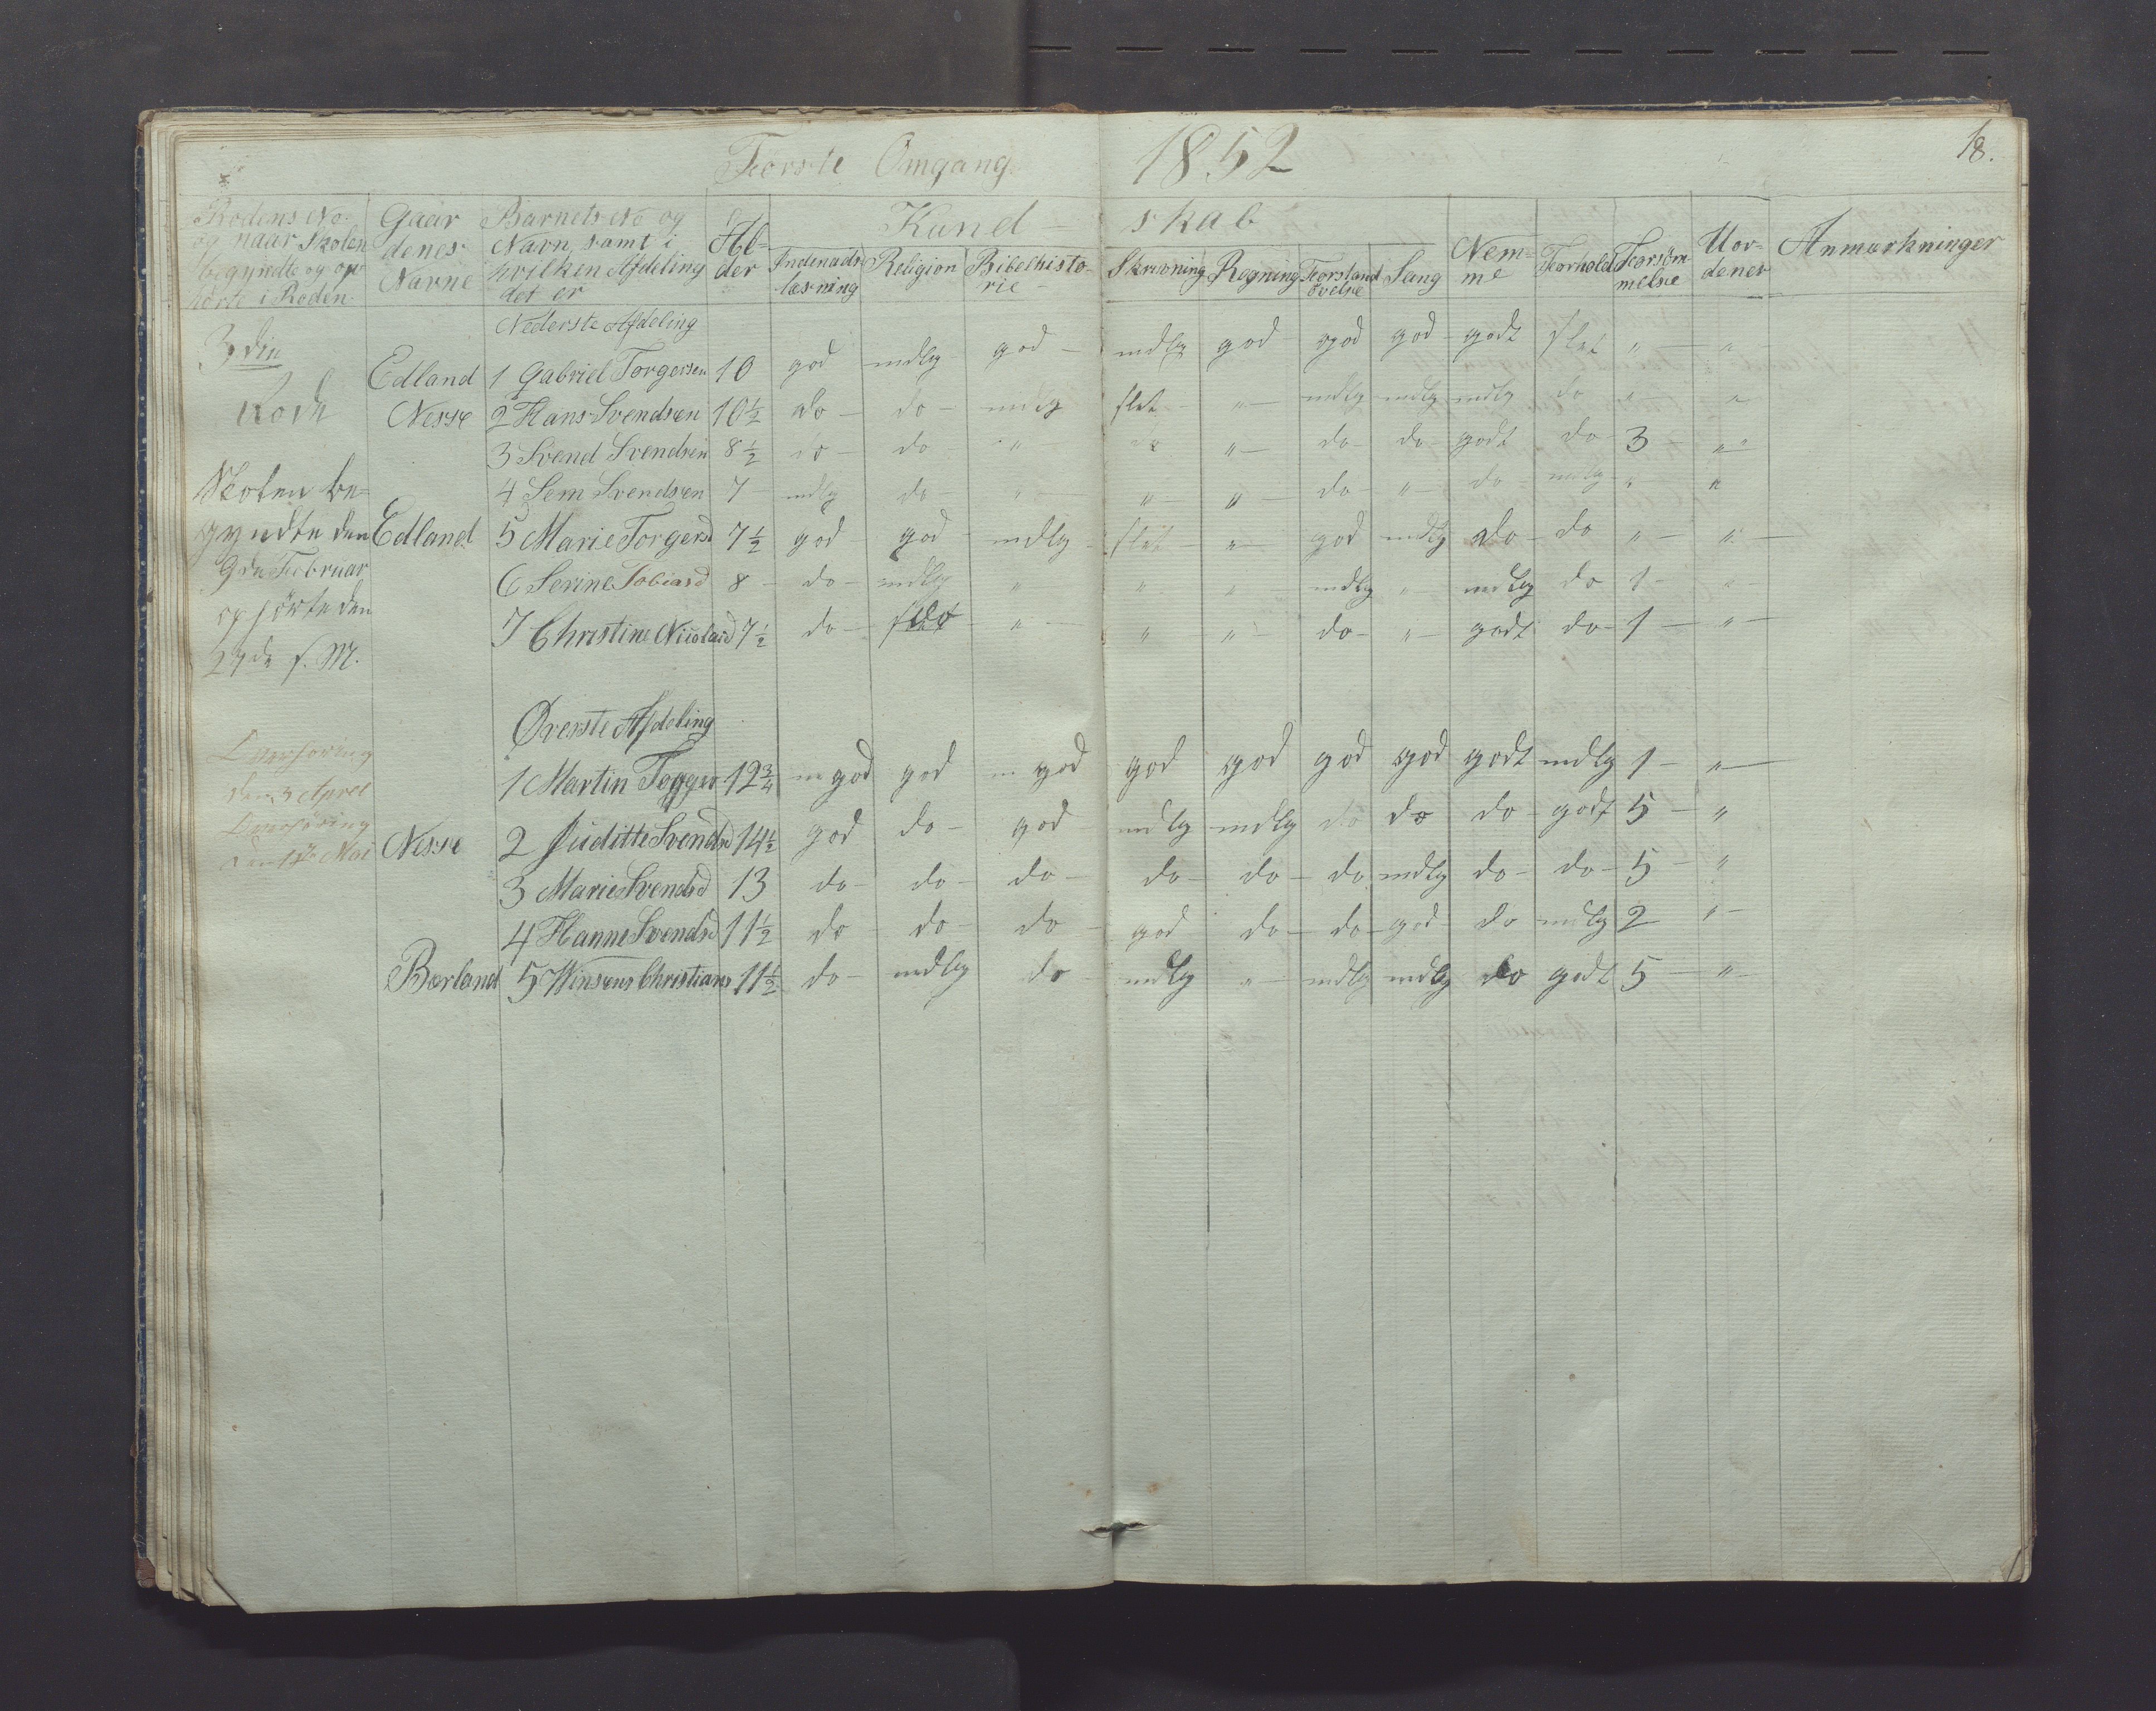 Første Omgang 1852
18.
Rodens No. og naar Skolen begyndte og ophørte i Roden
Gaardenes Navne
Barnets No og Navn, samt i hvilken Afdeling det er
Alder
Kundskab
Indenadslæsning
Religion
Bibelhistorie
Skrivning
Regning
Forstandøvelse
Sang
Nemme
Forhold
Forsømmelse
Uordener
Anmærkninger
3die Rode
Nederste Afdeling
Edland 1 Gabriel Torgersen 10 god mdlg god mdlg god god god godt slet " "
Nesse 2 Hans Svendsen 10 1/2 do do mdlg slet " mdlg mdlg mdlg do " "
3 Svend Svendsen 8 1/2 do do " do " do do godt do 3 "
4 Sem Svendsen 7 mdlg do " " " do " do mdlg " "
Edland 5 Marie Torgersd 7 1/2 god god mdlg slet " god mdlg do do " "
6 Serine Tobiasd 8 do mdlg " " " mdlg " mdlg do 1 "
7 Christine Nicolaisd 7 1/2 do slet " " " do " godt do 1 "
Skolen begyndte den
9de Februar
ophørte den
27de s. M.
Øverste Afdeling
1 Martin 12 3/4 m god god m god god god god god godt mdlg 1 "
Nesse 2 Juditte Svendsd 14 1/2 god do god mdlg mdlg do do do godt 5 "
3 Marie Svendsd 13 do do do do do do mdlg do do 5 "
4 Hanne Svendsd 11 1/2 do do do god do do god do mdlg 2 "
Børland 5 Christians 11 1/2 do mdlg do mdlg " mdlg mdlg do godt 5 "
den 3 April
den 1ste Mai